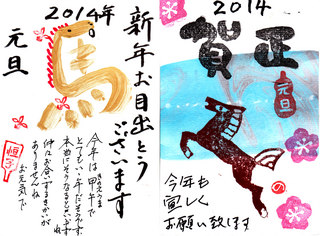 2014年
元旦
馬
新年お目出とう
ございます
今年は甲午で
とてもいい年だそうです
本当にそうなるといいですね
仲々お会いするきかいが
ありませんね
お元気で
恒子
2014
賀正
元旦
今年も
宜しく
お願い致します
の